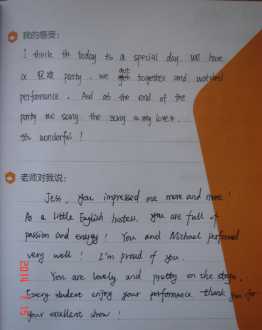 我的感受:
I think th today is a special day. We have
a 狂欢 party. We got together and watched
performance. And at the end of the
party we song the song is my love.
It's wonderful!
老师对我说:
Jess, you impressed me more and more!
As a little English hostess, you are full of
passion and energy! You and Michael performed
very well! I'm proud of you.
You are lovely and pretty on the stage.
Every student enjoy your performance. thank you for
your excellent show!
2014 15